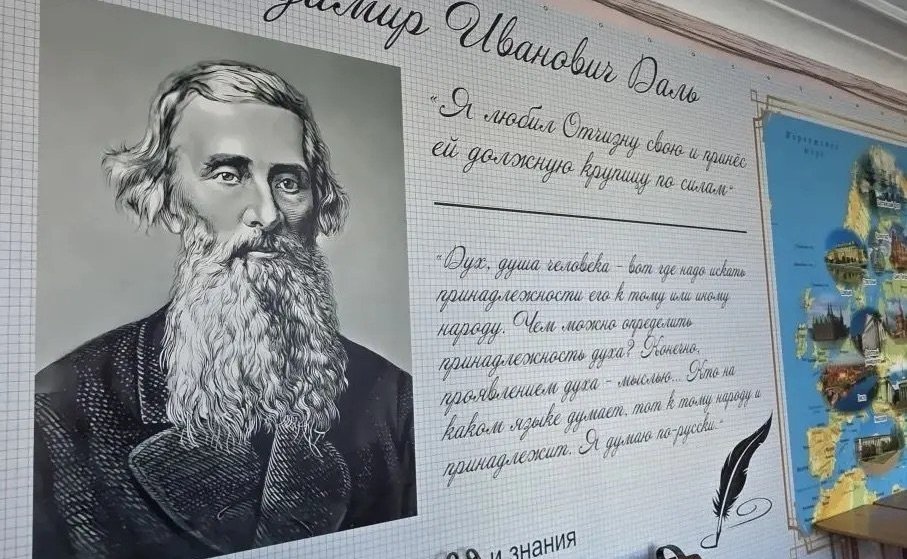 димир Иванович Даль
"Я любил Отчизну свою и принёс
ей должную крупицу по силам"
"Дух, душа человека - вот где надо искать
принадлежности его к тому или иному
народу. Чем можно определить
принадлежность духа? Конечно,
проявлением духа - мыслью... Кто на
каком языке думает, тот к тому народу и
принадлежит. Я думаю по-русски."
и знания